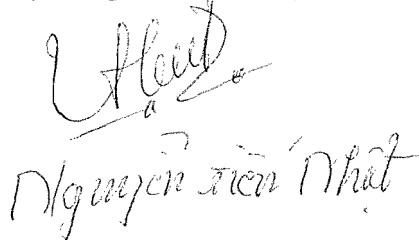 Nguyễn Tiến Nhật